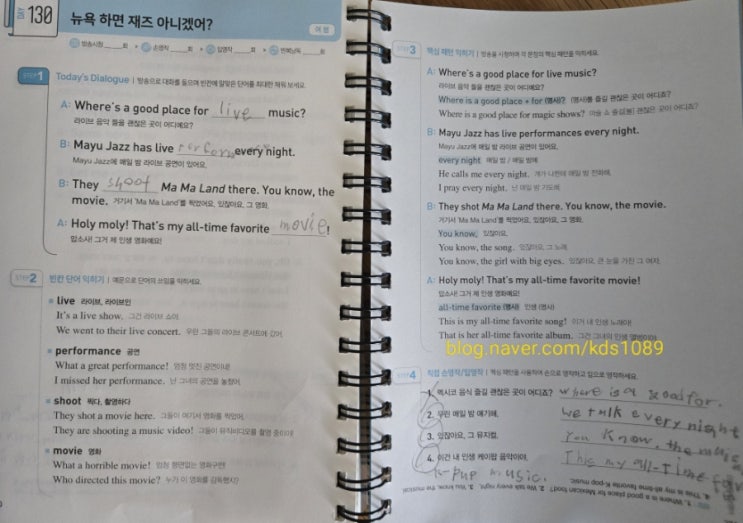 DAY 130
뉴욕 하면 재즈 아니겠어?
여행
방송시청 ____회 손영작 ____회 입영작 ____회 반복낭독 ____회
STEP 1 Today's Dialogue | 방송으로 대화를 들으며 빈칸에 알맞은 단어를 최대한 채워 보세요.
A: Where's a good place for live music?
라이브 음악 즐길 괜찮은 곳이 어디예요?
B: Mayu Jazz has live perform every night.
Mayu Jazz에 매일 밤 라이브 공연이 있어요.
B: They shoot Ma Ma Land there. You know, the
movie. 거기서 'Ma Ma Land'를 찍었어요, 있잖아요, 그 영화.
A: Holy moly! That's my all-time favorite movie!
맙소사! 그거 제 인생 영화예요!
STEP 2 빈칸 단어 익히기 | 예문으로 단어의 쓰임을 익히세요.
live 라이브, 라이브인
It's a live show. 그건 라이브 쇼야.
We went to their live concert. 우린 그들의 라이브 콘서트에 갔어.
performance 공연
What a great performance! 엄청 멋진 공연이네!
I missed her performance. 난 그녀의 공연을 놓쳤어.
shoot 찍다, 촬영하다
They shot a movie here. 그들이 여기서 영화를 찍었어.
They are shooting a music video! 그들이 뮤직비디오를 촬영 중이야!
movie 영화
What a horrible movie! 엄청 형편없는 영화구만!
Who directed this movie? 누가 이 영화를 감독했지?
STEP 3 핵심 패턴 익히기 | 방송을 시청하며 각 문장의 핵심 패턴을 익히세요.
A: Where's a good place for live music?
라이브 음악 즐길 괜찮은 곳이 어디죠?
Where is a good place + for (명사)? (명사)를 즐길 괜찮은 곳이 어디죠?
Where is a good place for magic shows? 마술 쇼 즐길 괜찮은 곳이 어디죠?
B: Mayu Jazz has live performances every night.
Mayu Jazz에 매일 밤 라이브 공연이 있어요.
every night 매일 밤 / 매일 밤에
He calls me every night. 걔가 나한테 매일 밤 전화해.
I pray every night. 난 매일 밤 기도해.
B: They shot Ma Ma Land there. You know, the movie.
거기서 'Ma Ma Land'를 찍었어요, 있잖아요, 그 영화.
You know, 있잖아요,
You know, the song. 있잖아요, 그 노래.
You know, the girl with big eyes. 있잖아요, 큰 눈을 가진 그 여자.
A: Holy moly! That's my all-time favorite movie!
맙소사! 그거 제 인생 영화예요!
all-time favorite (명사) 인생 (명사)
This is my all-time favorite song! 이거 내 인생 노래야!
That is her all-time favorite album. 그건 그녀의 인생 앨범이야.
blog.naver.com/kds1089
STEP 4 직접 손영작/입영작 | 핵심 패턴을 사용하여 손으로 영작하고 입으로 영작하세요.
1. 멕시코 음식 즐길 괜찮은 곳이 어디죠? where is a good for.
2. 우린 매일 밤 얘기해. we talk every night
3. 있잖아요, 그 뮤지컬. You know, the music
4. 이건 내 인생 케이팝 음악이야. This my all-time
k-pop music.
1. Where is a good place for Mexican food? 2. We talk every night. 3. You know, the musical.
4. This is my all-time favorite K-pop music.